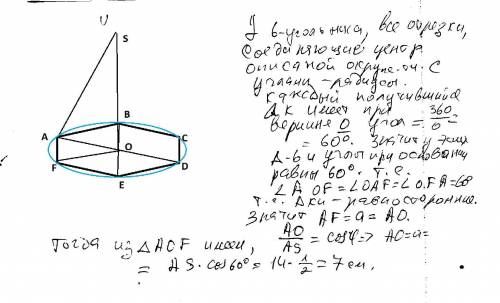 S
B
A
C
O
F
D
E
У 6-угольника, все отрезки,
соединяющие центр
описаной окруж-ти с
углами - радиусы.
каждый получившийся
Δк имеет при
вершине O угол = 360/6 =
= 60°. Значит у этих
Δ-в и углы при основании
равны 60°. т.е.
∠AOF=∠OAF=∠OFA=60
т.е. Δки - равносторонние.
Значит AF=a=AO.
Тогда из ΔAOF имеем, AO/AS = cos φ => AO=a=
= AS·cos60°=14·1/2=7 см.